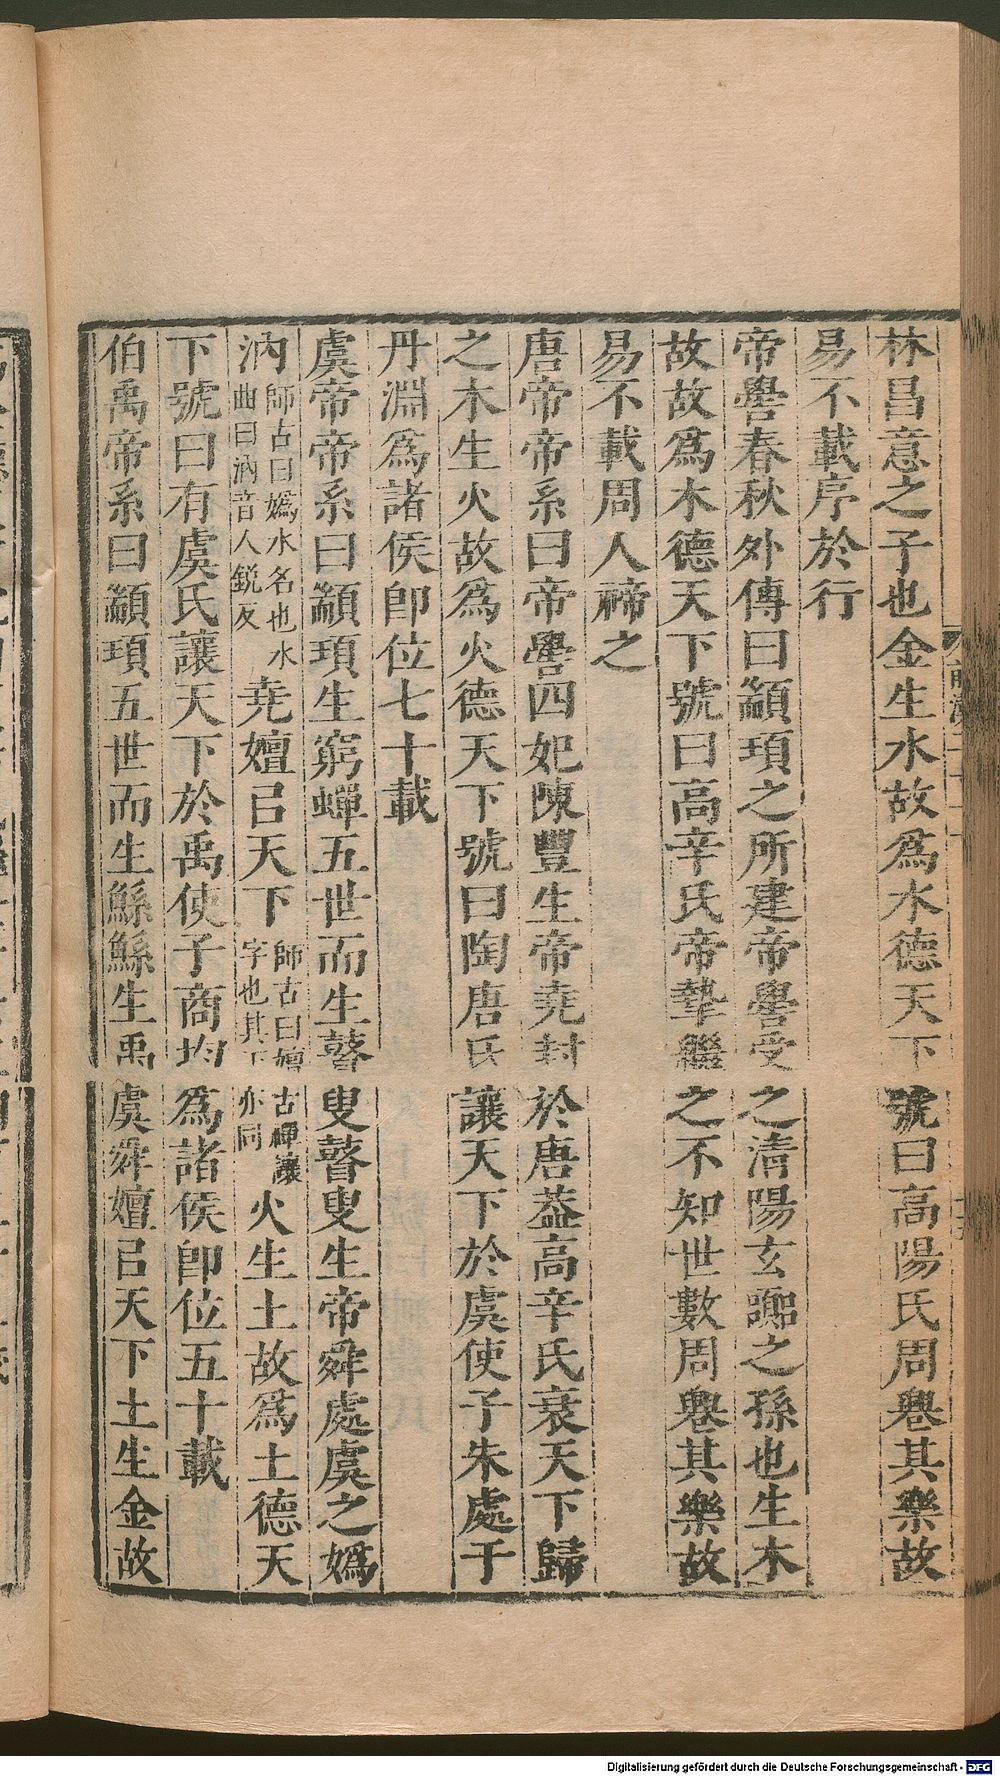 林昌意之子也金生水故爲水德天下號曰高陽氏周罨其樂故
易不載序於行
帝嚳春秋外傳曰顓頊之所建帝嚳受之清陽玄囂之孫也生木
故故爲木德天下號曰高辛氏帝摯繼之不知世數周罨其樂故
易不載周人禘之
唐帝帝系曰帝嚳四妃陳豐生帝尭封於唐葢高辛氏衰天下歸
之木生火故爲火德天下號曰陶唐氏讓天下於虞使子朱處于
丹淵爲諸侯卽位七十載
虞帝帝系曰顓頊生窮蟬五世而生瞽叟瞽叟生帝舜處虞之嬀
汭師古曰嬀水名也水曲曰汭音人鋭反尭嬗㠯天下師古曰嬗古禪讓字也其下亦同火生土故爲土德天
下號曰有虞氏讓天下於禹使子商均爲諸侯卽位五十載
伯禹帝系曰顓頊五世而生鯀鯀生禹虞舜嬗㠯天下土生金故
前漢二十一
Digitalisierung gefördert durch die Deutsche Forschungsgemeinschaft - DFG